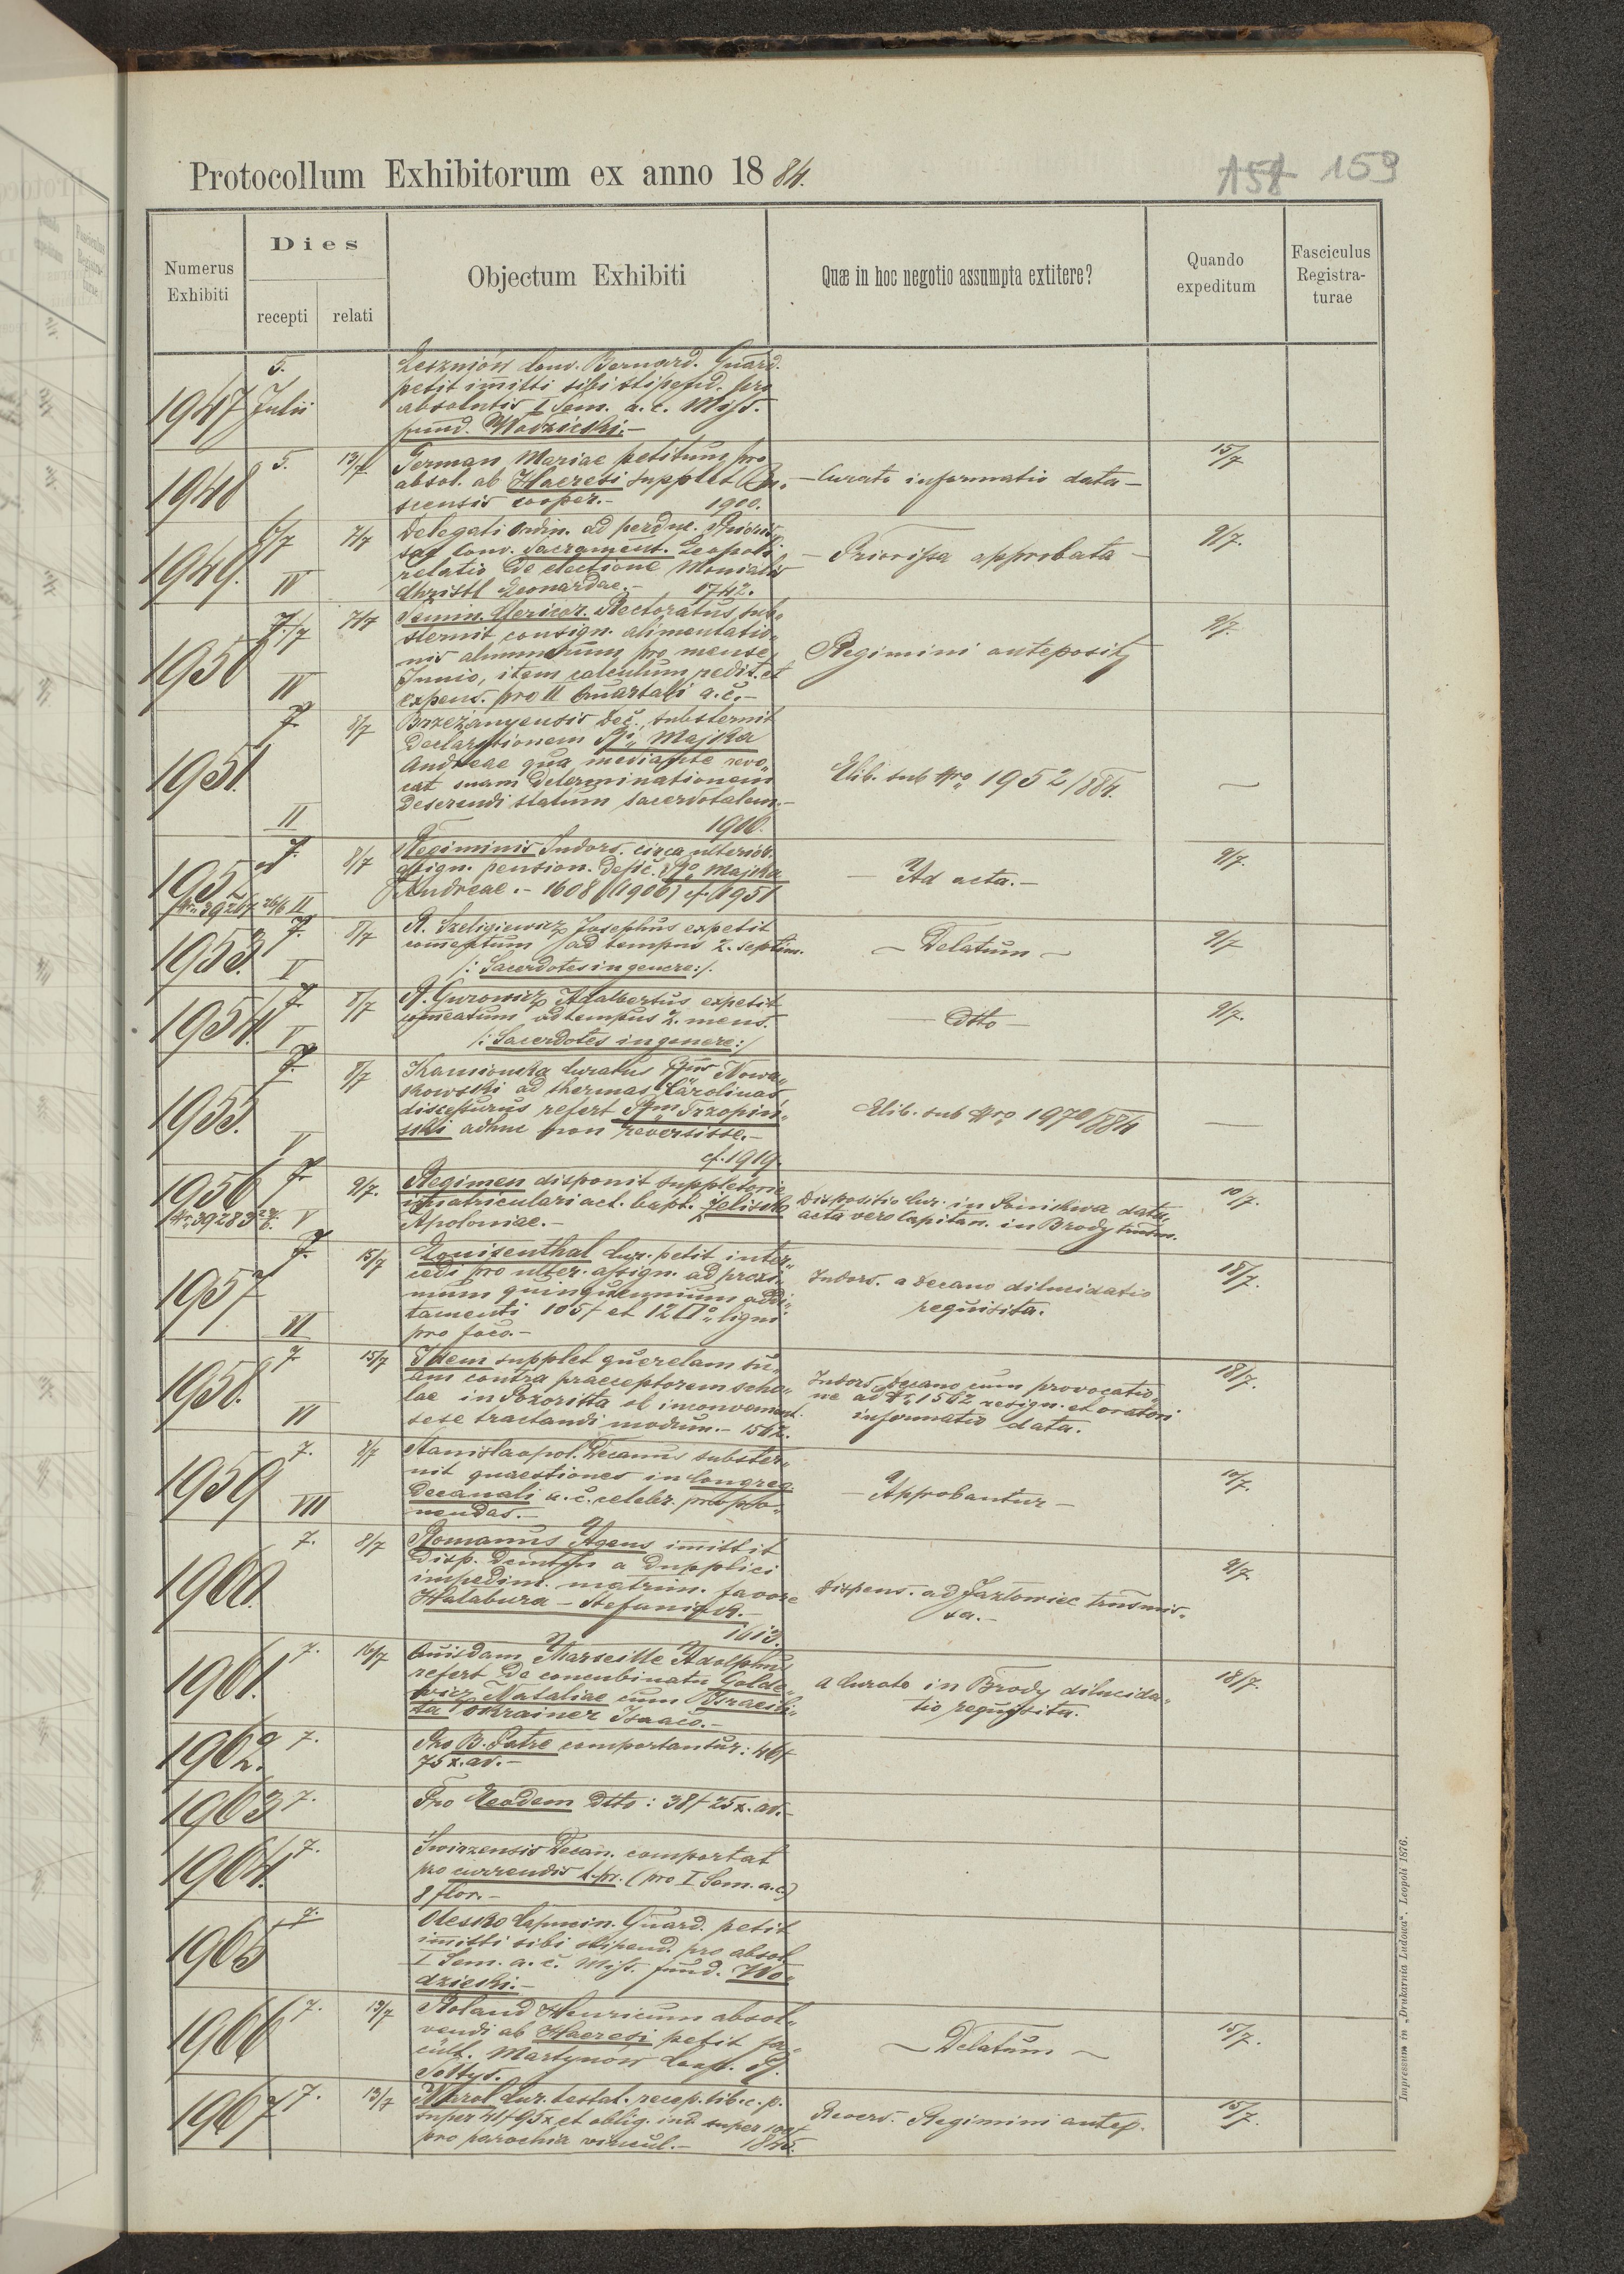 Protocollum Exhibitorum ex anno 1884.
159
Numerus Exhibiti
Dies
recepti
relati
Objectum Exhibiti
Quæ in hoc negotio assumpta extitere?
Quando expeditum
Fasciculus Registra-turae
1947
5. Julii
Leszniów Conv. Bernard. Guard.
petit imitti sibi stipend. pro
absolutis I Sem. a. c. Miss.
fund. Wodzicki.-
1948
5.
13/7
German Mariae petitum pro
absol. ab Haeresi supplet
scensis cooper.-
1900.
- Curato informatio data -
15/7
1949.
6/7
IV
7/7
Delegati Ordin. ad perduc.
Conv. Sacrament. Leopoli
relatio de electione Monialis
Christl Leonardae.- 1742.
- Priorissa approbata -
9/7.
1950
7./7
IV
7/7
Semin. Clericor. Rectoratus sub-
sternit consign. alimentatio-
nis alumnorum pro mense
Junio, item calculum pedit. et
expens. pro II Quartali a. c.-
Regimini anteposit
9/7.
1951.
7.
II
8/7
Brzeżanyensis Dec. substernit
Declarationem Majka
Andreae qua mediante revo-
cat suam determinationem
deserendi statum sacerdotalem.-
1906.
Elib. sub Nro 1952/884.
1952
Nr. 39267 26/6 II
7.
8/7
Regiminis Indors. circa ulterior.
assign. pension. defic. Majka
Andreae.- 1608 (1906) cf. 1951
- Ad acta.-
9/7.
1953.
7.
V
8/7
A. Szeligiewicz Josephus expetit
comeatum ad tempus 2. septim.
/: Sacerdotes in genere:/.
- Delatum -
9/7
1954.
7.
V
8/7
A. Gurowicz Adalbertus expetit
comeatum ad tempus 2. mens.
/: Sacerdotes in genere:/
- dtto -
9/7.
1955.
7.
V
8/7
Kamionka Curatus Nowa-
kowski ad thermas Carolinas
discessurus refert Trzopiń-
ski adhuc non reversisse.-
cf. 1919.
Elib. sub Nro 1970/884
1956
Nr. 39283
7.
V
9/7.
Regimen disponit suppletorie
imatriculari act. bapt. Jelisko
Apoloniae.-
Dispositio Cur. in Poniskwa data,
acta vero Capitan. in Brody trnsm.
10/7.
1957
7.
VI
15/7
Louisenthal Cur. petit inter-
cedi pro ulter. assign. ad proxi-
mum quinquennium addi-
tamenti 105f et 12 ligni
pro foco.-
Indors. a Decano dilucidatio
requisita.
18/7.
1958.
7.
VI
15/7
Idem supplet querelam su-
am contra praeceptorem scho-
lae in Pozoritta et inconvenient.
sese tractandi modum.- 1562.
Indors. Decano cum provocatio-
ne ad Nr. 1562 resign. et oratori
informatio data.
18/7.
1959
7.
VIII
8/7
Stanislaopol. Decanus subster-
nit quaestiones in Congreg.
Decanali a. c. celebr. propo-
nendas.-
- Approbantur -
10/7.
1960.
7.
8/7
Romanus Agens imittit
Disp. a dupplici
impedim. matrim. favore
Halabura - Stefaniuk.-
1613.
Dispens. ad Jazłowiec trnsmis-
sa.-
9/7.
1961.
7.
16/7
Quidam Marseille Adolphus
refert de concubinatu Golde-
wicz Nataliae cum Israeli-
ta Okrainer Isaaco.-
a Curato in Brody dilucida-
tio requisita.
18/7.
1962.
7.
Pro B. Patre comportantur: 46f
75x. av.-
1963
7.
Pro Eeodem dtto: 38f 25x. av.-
1964.
7.
Swirzensis Decan. comportat
pro currendis l. pr. (pro I Sem. a. c.)
8 flor.-
1965
7.
Olesko Capucin. Guard. petit
imitti sibi stipend. pro absol.
I Sem. a. c. Miss. fund. Wo-
dzicki.-
1966
7.
13/7
Roland Henricum absol-
vendi ab Haeresi petit fa-
cult. Martynów Coop.
Sołtys.
- Delatum -
15/7.
1967
7.
13/7
Mhrol Cur. testat. recep. lib. c. p.
super 41f 95x et oblig. ind. super 100f
pro parochia vincul.- 1845.
Recers. Regimini antep.
15/7.
Impressum in „Drukarnia Ludowa“. Leopoli 1876.